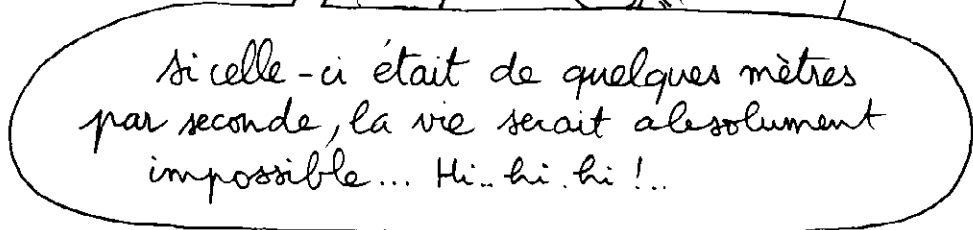 Si celle-ci était de quelques mètres
par seconde, la vie serait absolument
impossible... Hi.. hi. hi !..